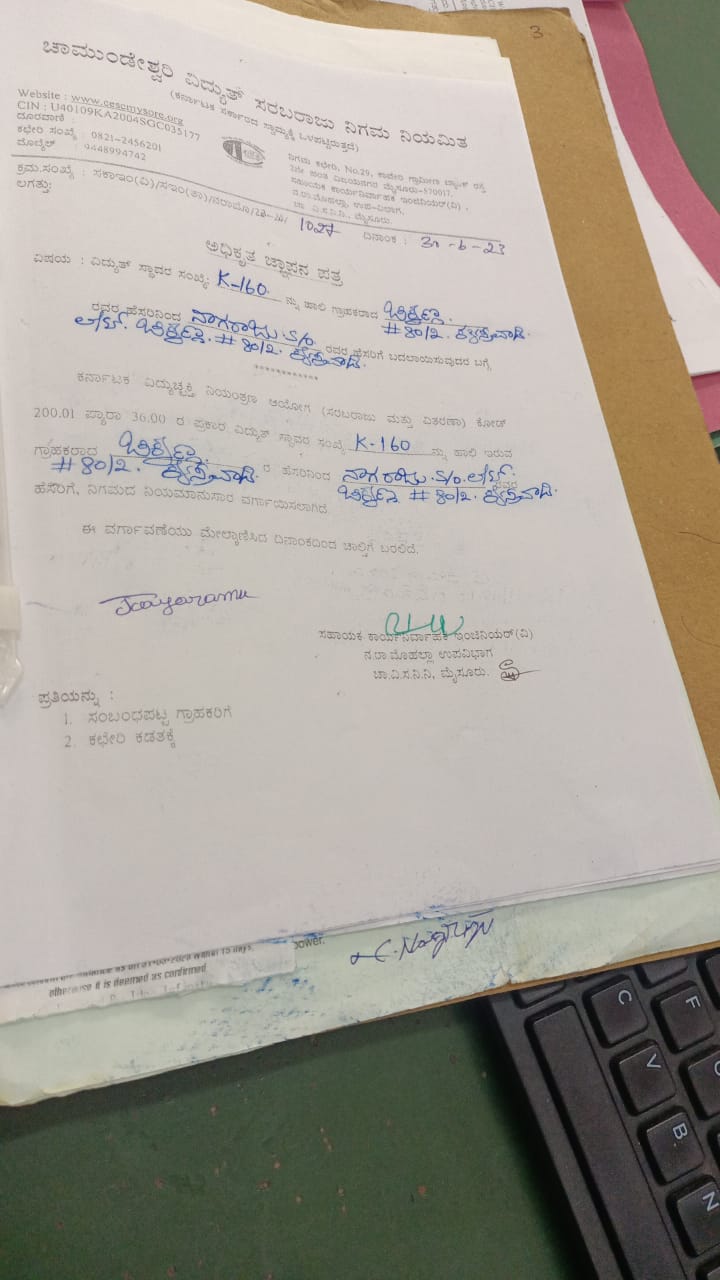 3
ಚಾಮುಂಡೇಶ್ವರಿ ವಿದ್ಯುತ್ ಸರಬರಾಜು ನಿಗಮ ನಿಯಮಿತ
(ಕರ್ನಾಟಕ ಸರ್ಕಾರದ ಸ್ವಾಮ್ಯಕ್ಕೆ ಒಳಪಟ್ಟಿರುತ್ತದೆ)
Website : www.cescmysore.org
CIN : U40109KA2004SGC035177
ದೂರವಾಣಿ :
ಕಛೇರಿ ಸಂಖ್ಯೆ : 0821-2456201
ಮೊಬೈಲ್ : 9448994742
ನಿಗಮ ಕಛೇರಿ, No.29, ಕಾವೇರಿ ಗ್ರಾಮೀಣ ಬ್ಯಾಂಕ್ ರಸ್ತೆ
2ನೇ ಹಂತ ವಿಜಯನಗರ ಮೈಸೂರು-570017.
ಸಹಾಯಕ ಕಾರ್ಯನಿರ್ವಾಹಕ ಇಂಜಿನಿಯರ್(ವಿ) ,
ನ.ರಾ.ಮೊಹಲ್ಲಾ, ಉಪ-ವಿಭಾಗ,
ಚಾ.ವಿ.ಸ.ನಿ.ನಿ., ಮೈಸೂರು.
ಕ್ರಮ.ಸಂಖ್ಯೆ : ಸಕಾಇಂ(ವಿ)/ಸಇಂ(ತಾ)/ನರಾಮೊ/ 1027 ದಿನಾಂಕ : 30-6-23
ಲಗತ್ತು:
ಅಧಿಕೃತ ಜ್ಞಾಪನ ಪತ್ರ
ವಿಷಯ : ವಿದ್ಯುತ್ ಸ್ಥಾವರ ಸಂಖ್ಯೆ: K-160 ನ್ನು ಹಾಲಿ ಗ್ರಾಹಕರಾದ
#80/2.
ರವರ ಹೆಸರಿನಿಂದ ನಾಗರಾಜು S/o
#80/2. ರವರ ಹೆಸರಿಗೆ ಬದಲಾಯಿಸುವುದರ ಬಗ್ಗೆ.
************
ಕರ್ನಾಟಕ ವಿದ್ಯುಚ್ಛಕ್ತಿ ನಿಯಂತ್ರಣ ಆಯೋಗ (ಸರಬರಾಜು ಮತ್ತು ವಿತರಣಾ) ಕೋಡ್
200.01 ಪ್ಯಾರಾ 36.00 ರ ಪ್ರಕಾರ ವಿದ್ಯುತ್ ಸ್ಥಾವರ ಸಂಖ್ಯೆ K-160 ನ್ನು ಹಾಲಿ ಇರುವ
ಗ್ರಾಹಕರಾದ
#80/2. ರ ಹೆಸರಿನಿಂದ ನಾಗರಾಜು. S/o. ರವರ
#80/2.
ಹೆಸರಿಗೆ, ನಿಗಮದ ನಿಯಮಾನುಸಾರ ವರ್ಗಾಯಿಸಲಾಗಿದೆ.
ಈ ವರ್ಗಾವಣೆಯು ಮೇಲ್ಕಾಣಿಸಿದ ದಿನಾಂಕದಿಂದ ಚಾಲ್ತಿಗೆ ಬರಲಿದೆ.
Jayaramu
ಸಹಾಯಕ ಕಾರ್ಯನಿರ್ವಾಹಕ ಇಂಜಿನಿಯರ್(ವಿ)
ನ.ರಾ.ಮೊಹಲ್ಲಾ ಉಪವಿಭಾಗ
ಚಾ.ವಿ.ಸ.ನಿ.ನಿ, ಮೈಸೂರು.
ಪ್ರತಿಯನ್ನು :
1. ಸಂಬಂಧಪಟ್ಟ ಗ್ರಾಹಕರಿಗೆ
2. ಕಛೇರಿ ಕಡತಕ್ಕೆ
power.
otherwise it is deemed as confirmed
C
F
V
B
N